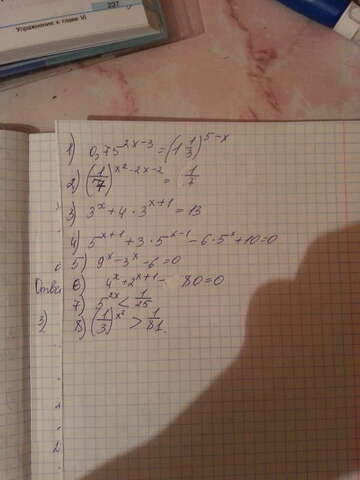 237
Упражнение к главе VI
1) 0,75^{2x-3} = (1 1/3)^{5-x}
2) (1/7)^{x²-2x-2} = 1/7
3) 3^x + 4 · 3^{x+1} = 13
4) 5^{x+1} + 3 · 5^{x-1} - 6 · 5^x + 10 = 0
5) 9^x - 3^x - 6 = 0
Ответ 6) 4^x + 2^{x+1} - 80 = 0
7) 5^{2x} < 1/25
3) 8) (1/3)^{x²} > 1/81.